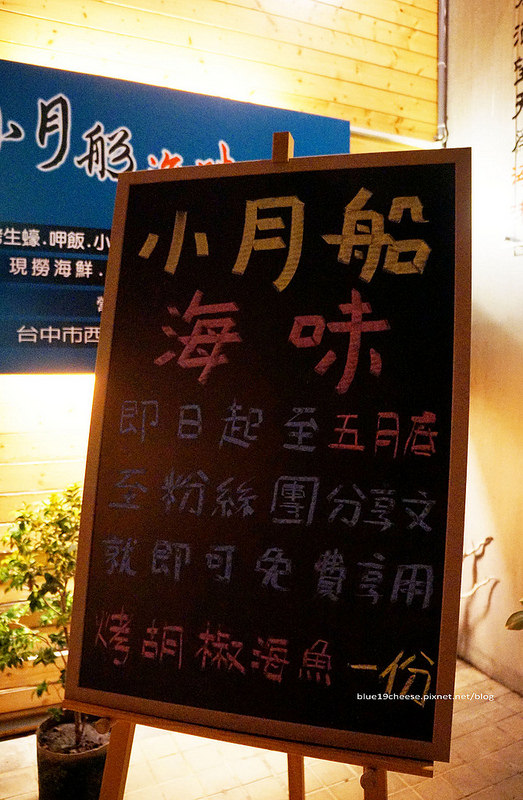 小月船
生蠔.呷飯.小
現撈海鮮.
台中市西
小月船
海味
即日起至五月底
至粉絲團分享文
就即可免費享用
烤胡椒海魚一份
blue19cheese.pixnet.net/blog